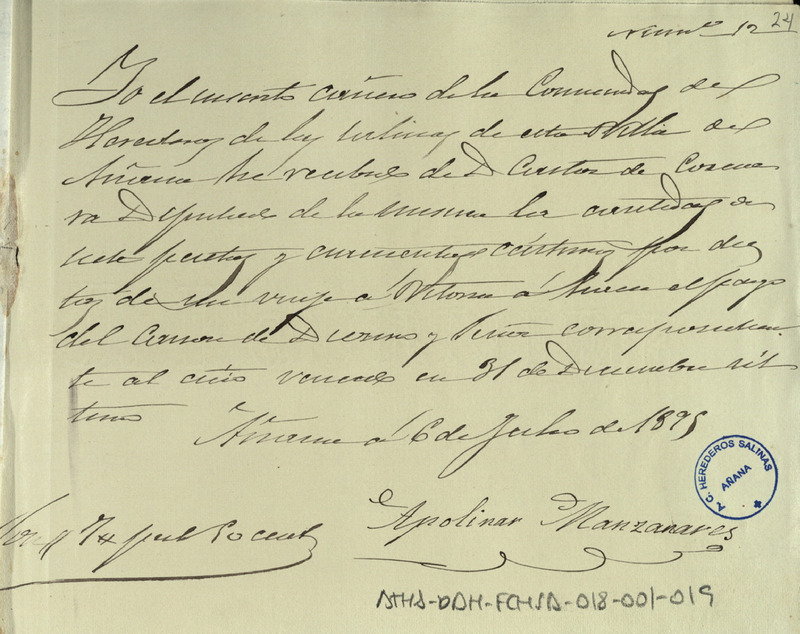 Numº 12
24
Yo el cañero de la Comunidad de
Herederos de las Salinas de esta Villa de
Añana he recibido de D Castor de
Diputado de la misma la cantidad de
siete pesetas y cincuenta centimos por die
tas de un viaje á Vitoria á hacer el pago
del Canon de Diezmo y correspondien
te al año vencido en 31 de Diciembre ul
timo
Añana á 6 de Julio de 1895
Son 7 pest 50 cent
Apolinar Manzanares
A. C. HEREDEROS SALINAS
AÑANA
ATHA-DAH-FCHSA-018-001-019